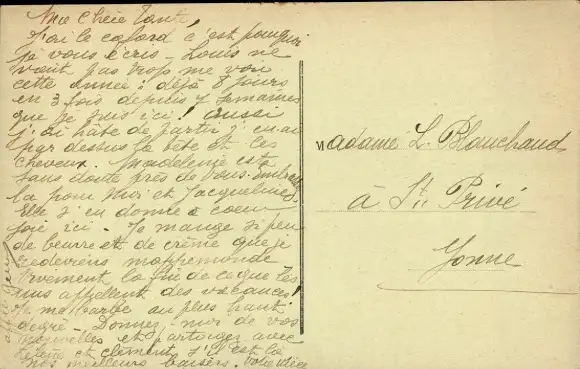 Ma chère Tante
J'ai le cafard c'est pourquoi
je vous écris - Louis ne
vient pas trop me voir
cette année : déjà 8 jours
en 3 fois depuis 7 semaines
que je suis ici ! aussi
j'ai hâte de partir j'en ai
par dessus la tête et les
cheveux. Madeleine est
sans doute près de vous. Embrassez
la pour moi et Jacqueline
Elle s'en donne à coeur
joie ici. Je mange si peu
de beurre et de crème que je
redeviens mappemonde
Vivement la fin de ce que les
uns appellent des vacances !
Je me barbe au plus haut
degré - Donnez moi de vos
nouvelles et partagez avec
et Clément s'il est là
nos meilleurs baisers. Votre nièce
Madame L. Blanchard
à St. Privé
Yonne